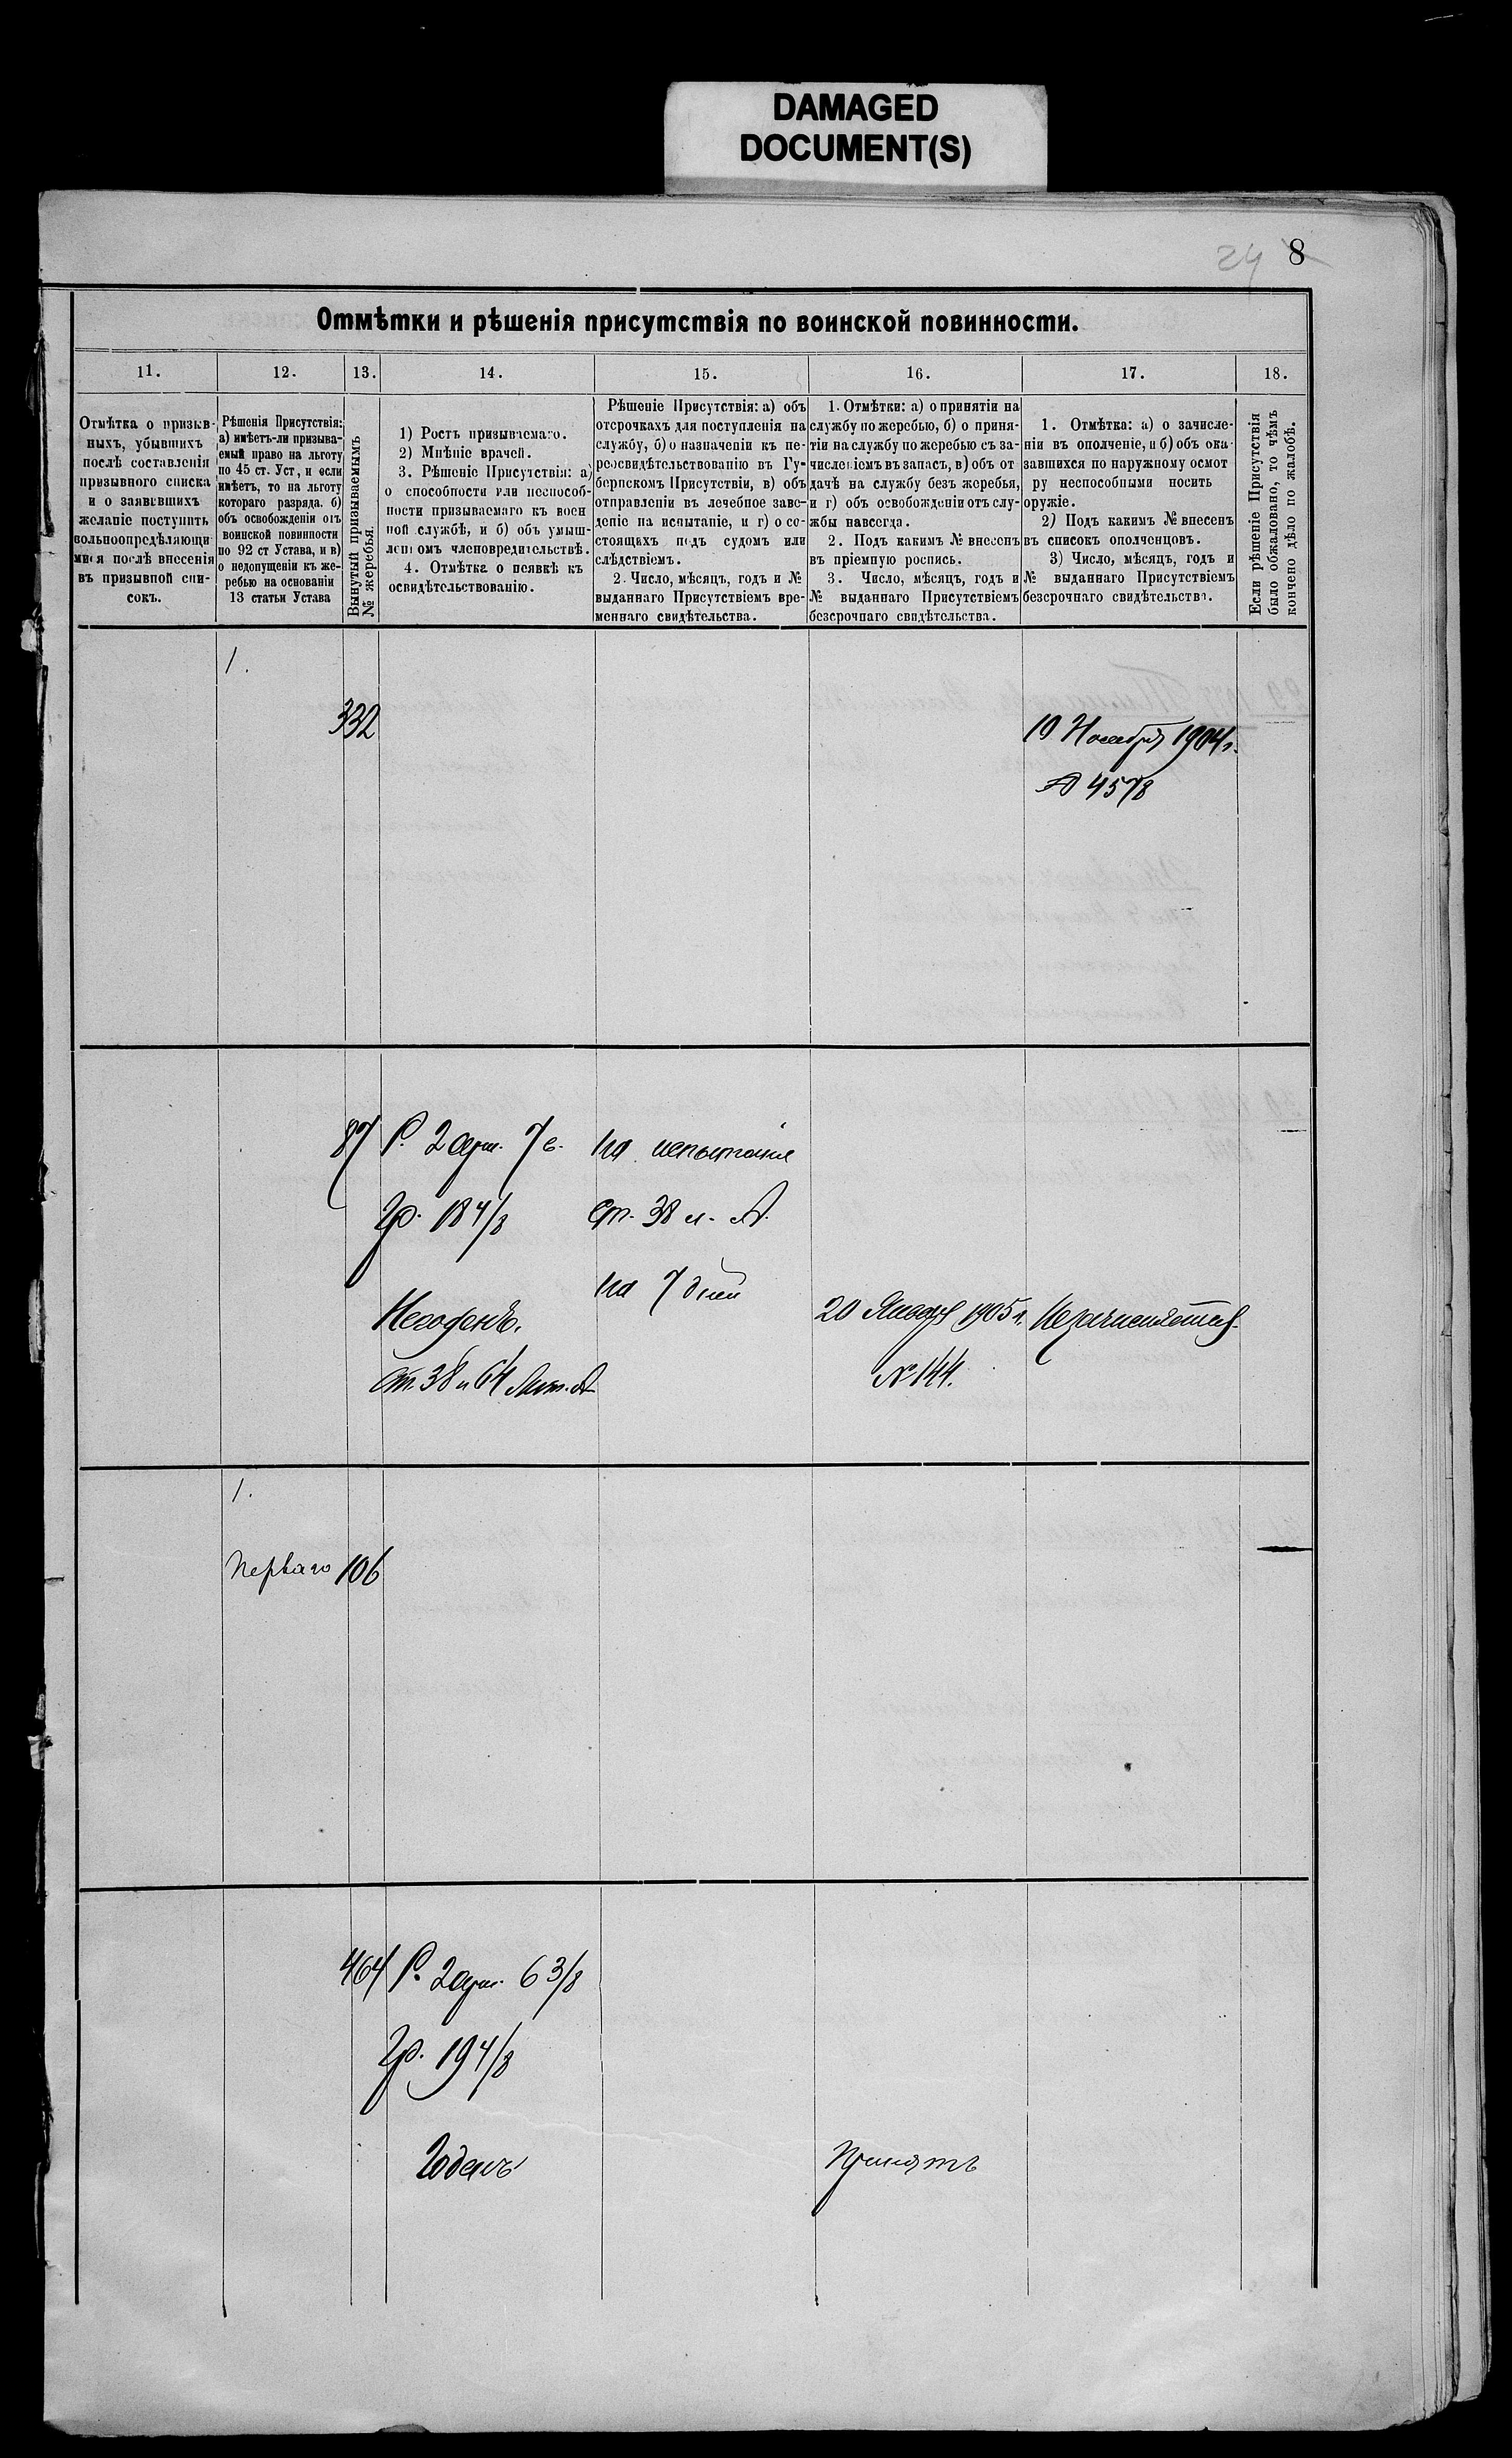 DAMAGED
DOCUMENT(S)
24 8
Отмѣтки и рѣшенія присутствія по воинской повинности.
11. 12. 13. 14. 15. 16. 17. 18.
Отмѣтка о призыв-
ныхъ, убывшихъ
послѣ составленія
призывного списка
и о заявившихъ
желаніе поступить
вольноопредѣляющи
мися послѣ внесенія
въ призывной спи-
сокъ.
Рѣшенія Присутствія:
а) имѣетъ-ли призыва-
емый право на льготу
по 45 ст. Уст, и если
имѣетъ, то на льготу
котораго разряда. б)
объ освобожденіи отъ
воинской повинности
по 92 ст Устава, и в)
о недопущеніи къ же-
ребью на основаніи
13 статьи Устава
Вынутый призываемымъ
№ жеребья.
1) Ростъ призываемаго.
2) Мнѣніе врачей.
3. Рѣшеніе Присутствія: а)
о способности или неспособ-
ности призываемаго къ воен
ной службѣ, и б) объ умыш-
ленномъ членовредительствѣ.
4. Отмѣтка о неявкѣ къ
освидѣтельствованію.
Рѣшеніе Присутствія: а) объ
отсрочкахъ для поступленія на
службу, б) о назначеніи къ пе-
реосвидѣтельствованію въ Гу-
бернскомъ Присутствіи, в) объ
отправленіи въ лечебное заве-
деніе на испытаніе, и г) о со-
стоящихъ подъ судомъ или
слѣдствіемъ.
2. Число, мѣсяцъ, годъ и №
выданнаго Присутствіемъ вре-
меннаго свидѣтельства.
1. Отмѣтки: а) о принятіи на
службу по жеребью, б) о приня-
тіи на службу по жеребью съ за-
численіемъ въ запасъ, в) объ от
дачѣ на службу безъ жеребья,
и г) объ освобожденіи отъ слу-
жбы навсегда.
2. Подъ какимъ № внесенъ
въ пріемную роспись.
3. Число, мѣсяцъ, годъ и
№ выданнаго Присутствіемъ
безсрочнаго свидѣтельства.
1. Отмѣтка: а) о зачисле-
ніи въ ополченіе, и б) объ ока
завшихся по наружному осмот
ру неспособными носить
оружіе.
2) Подъ какимъ № внесенъ
въ списокъ ополченцовъ.
3) Число, мѣсяцъ, годъ и
№ выданнаго Присутствіемъ
безсрочнаго свидѣтельства.
Если рѣшеніе Присутствія
было обжаловано, то чѣмъ
кончено дѣло по жалобѣ.
1.
332
10 Ноября 1904 г.
№ 4578
87 Р. 2 арш. 7 в. на испытаніе
Гр. 18 4/8 Ст. 38 л. А.
на 7 дней
Негоденъ. 20 Января 1905 г. Незачисляется
ст. 38 и 64 Лит. А № 144.
1.
Перваго 106
464 Р. 2 арш. 6 3/8
Гр. 19 4/8
Годенъ Принятъ